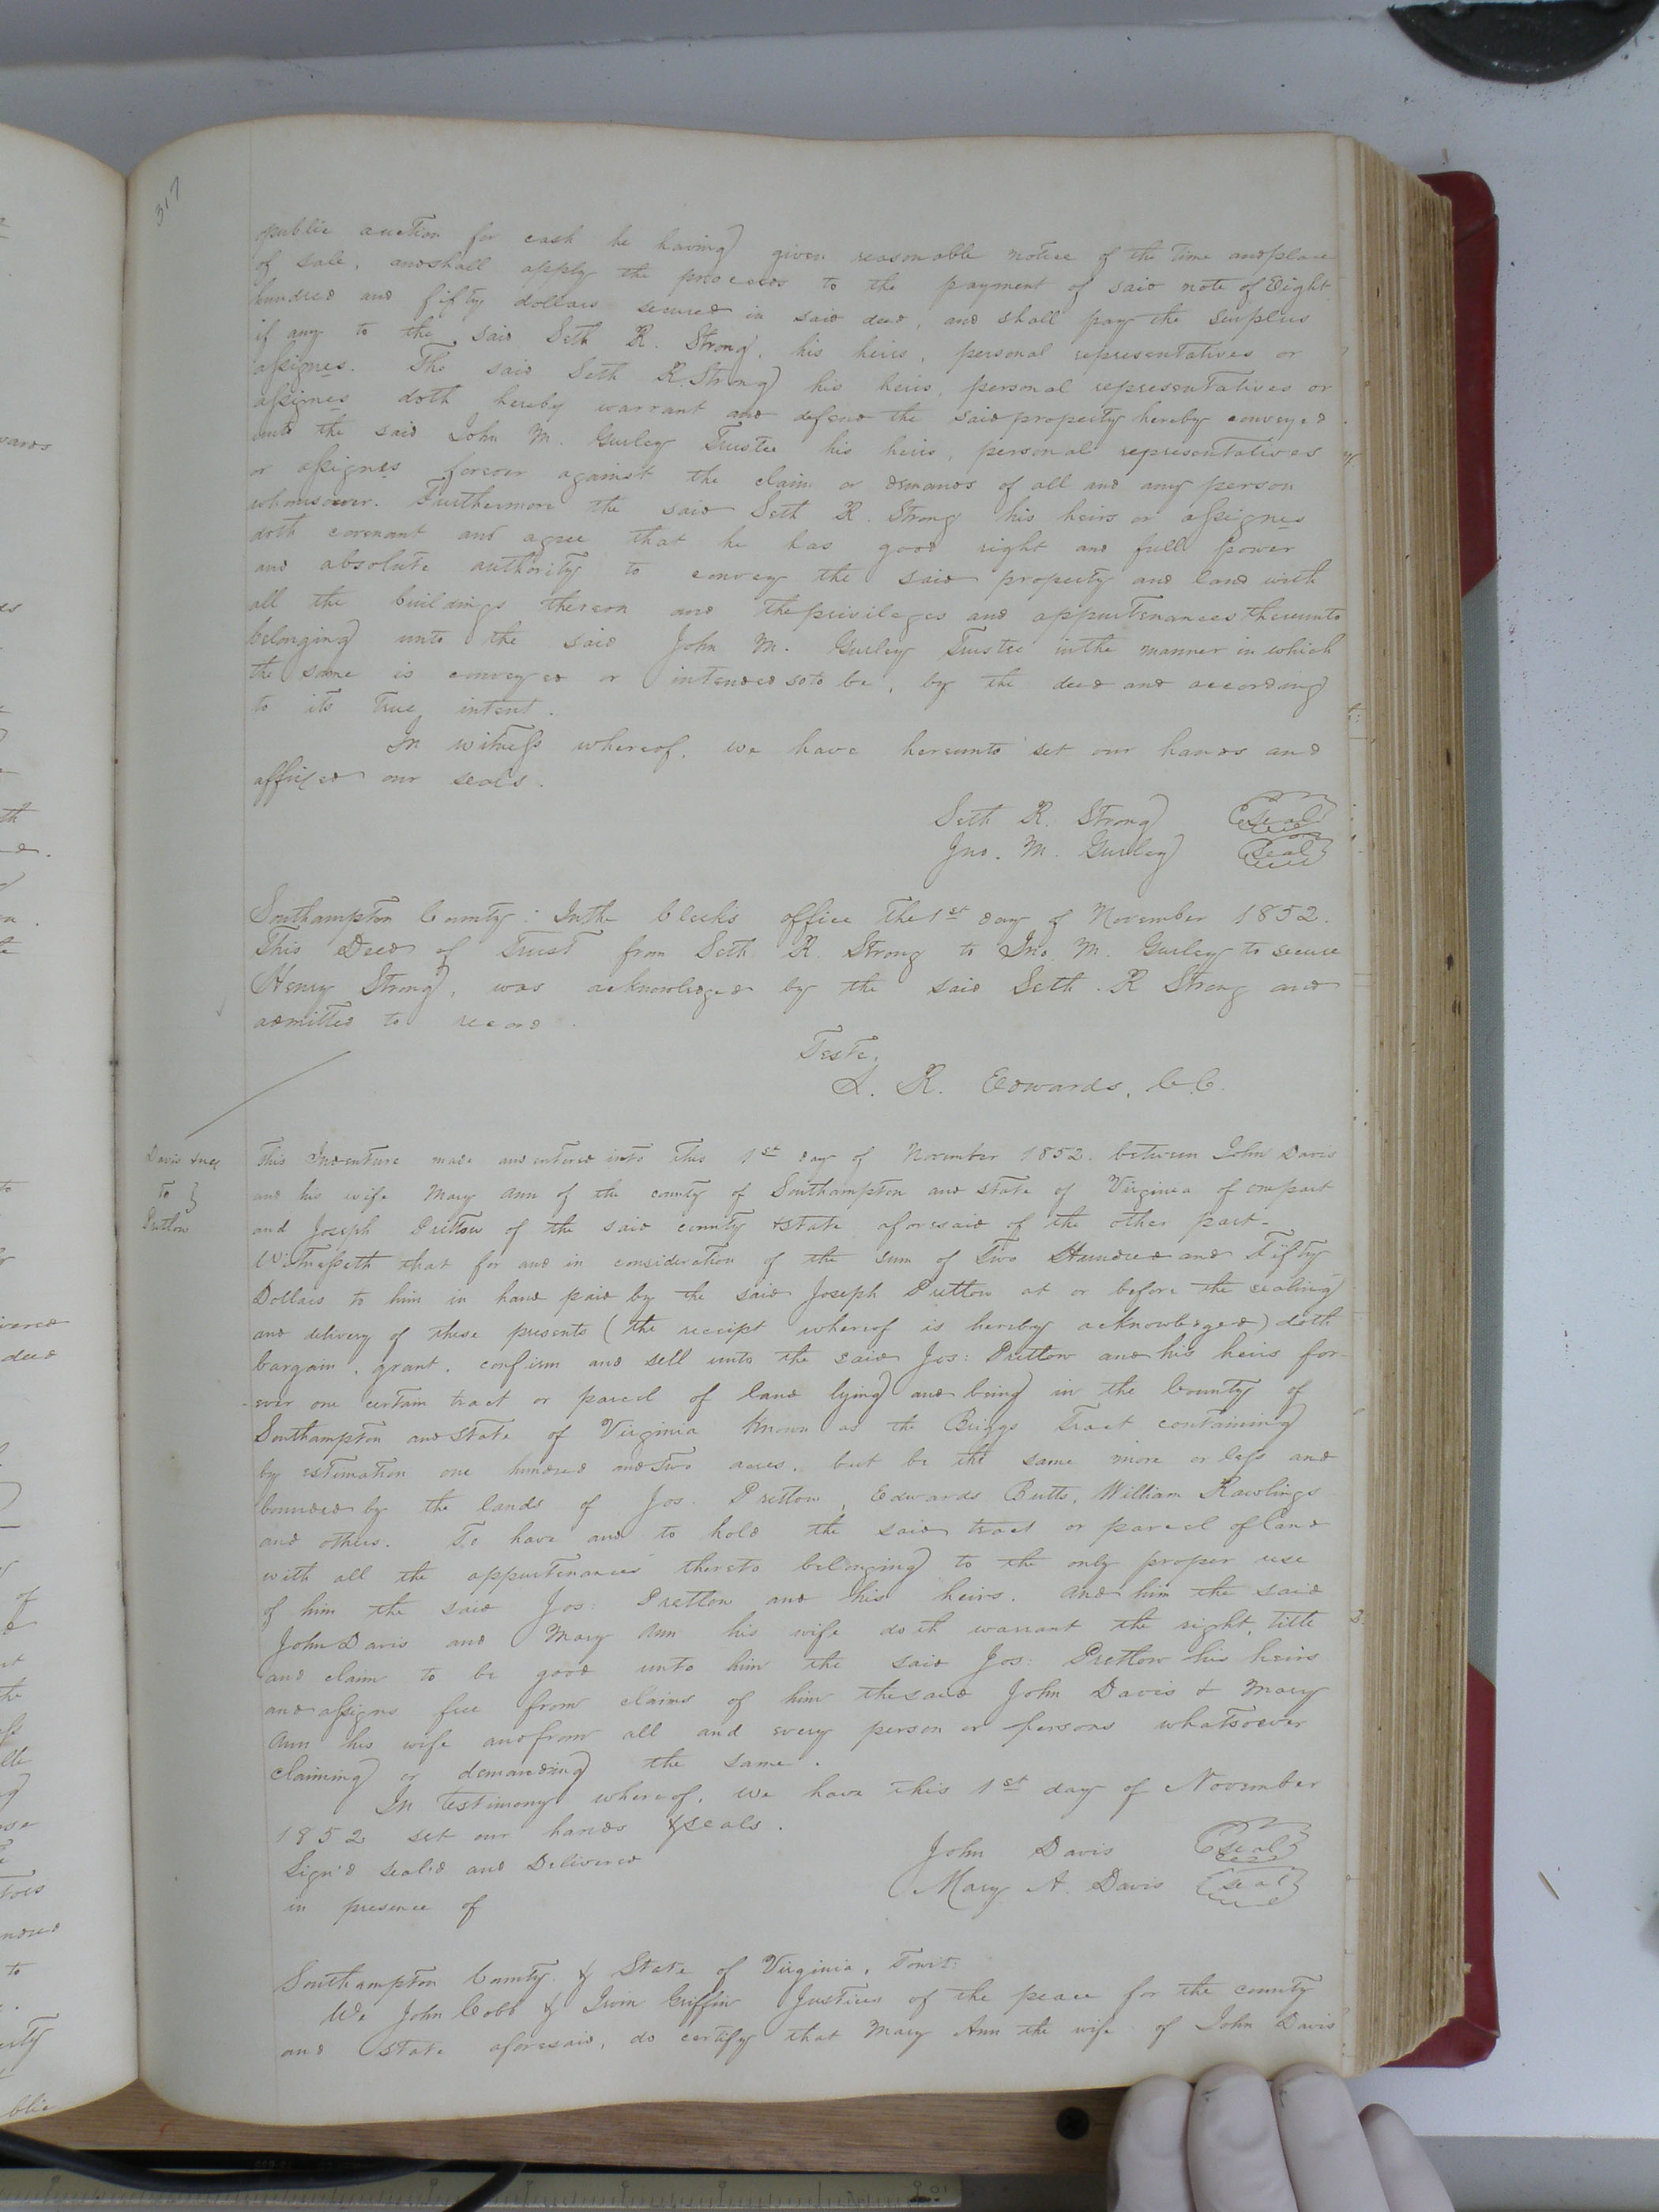 317
public auction for cash he having given reasonable notice of the time and place
of sale, and shall apply the proceeds to the payment of said note of Eight
hundred and fifty dollars secured in said deed, and shall pay the surplus
if any to the said Seth R. Strong, his heirs, personal representatives or
assignes. The said Seth R. Strong his heirs, personal representatives or
assignes doth hereby warrant and defend the said property hereby conveyed
unto the said John M. Gurley Trustee his heirs, personal representatives
or assignes forever against the claim or demands of all and any person
whomsoever. Furthermore the said Seth R. Strong his heirs or assignes
doth covenant and agree that he has good right and full power
and absolute authority to convey the said property and land with
all the buildings thereon and the privileges and appurtenances thereunto
belonging unto the said John M. Gurley Trustee in the manner in which
the same is conveyed or intended so to be, by the deed and according
to its true intent.
In witness whereof, we have hereunto set our hands and
affixed our seals.
Seth R. Strong Seal
Jno. M. Gurley Seal
Southampton County: In the Clerk's office the 1st day of November 1852.
This Deed of Trust from Seth R. Strong to Jno. M. Gurley to secure
Henry Strong, was acknowledged by the said Seth. R Strong and
admitted to record.
Teste,
L. R. Edwards, C.C.
Davis &
to }
Pretlow
This Indenture made and entered into this 1st day of November 1852. between John Davis
and his wife Mary Ann of the county of Southampton and state of Virginia of one part
and Joseph Pretlow of the said county & state aforesaid of the other part-
Witnesseth that for and in consideration of the sum of Two Hundred and Fifty
Dollars to him in hand paid by the said Joseph Pretlow at or before the sealing
and delivery of these presents (the receipt whereof is hereby acknowledged) doth
bargain, grant, confirm and sell unto the said Jos: Pretlow and his heirs for-
-ever one certain tract or parcel of land lying and being in the County of
Southampton and State of Virginia known as the Briggs Tract containing
by estimation one hundred and two acres, but be the same more or less and
bounded by the lands of Jos. Pretlow, Edwards Butts, William Rawlings
and others. To have and to hold the said tract or parcel of land
with all the appurtenances thereto belonging to the only proper use
of him the said Jos: Pretlow and his heirs. And him the said
John Davis and Mary Ann his wife doth warrant the right, title
and claim to be good unto him the said Jos: Pretlow his heirs
and assigns free from claims of him the said John Davis & Mary
Ann his wife and from all and every person or persons whatsoever
claiming or demanding the same.
In testimony whereof, we have this 1st day of November
1852 set our hands & seals.
Sign'd seal'd and Delivered
in presence of
John Davis Seal
Mary A. Davis Seal
Southampton County & State of Virginia, Towit:
We John Cobb & Irvin Griffin Justices of the peace for the county
and State aforesaid, do certify that Mary Ann the wife of John Davis